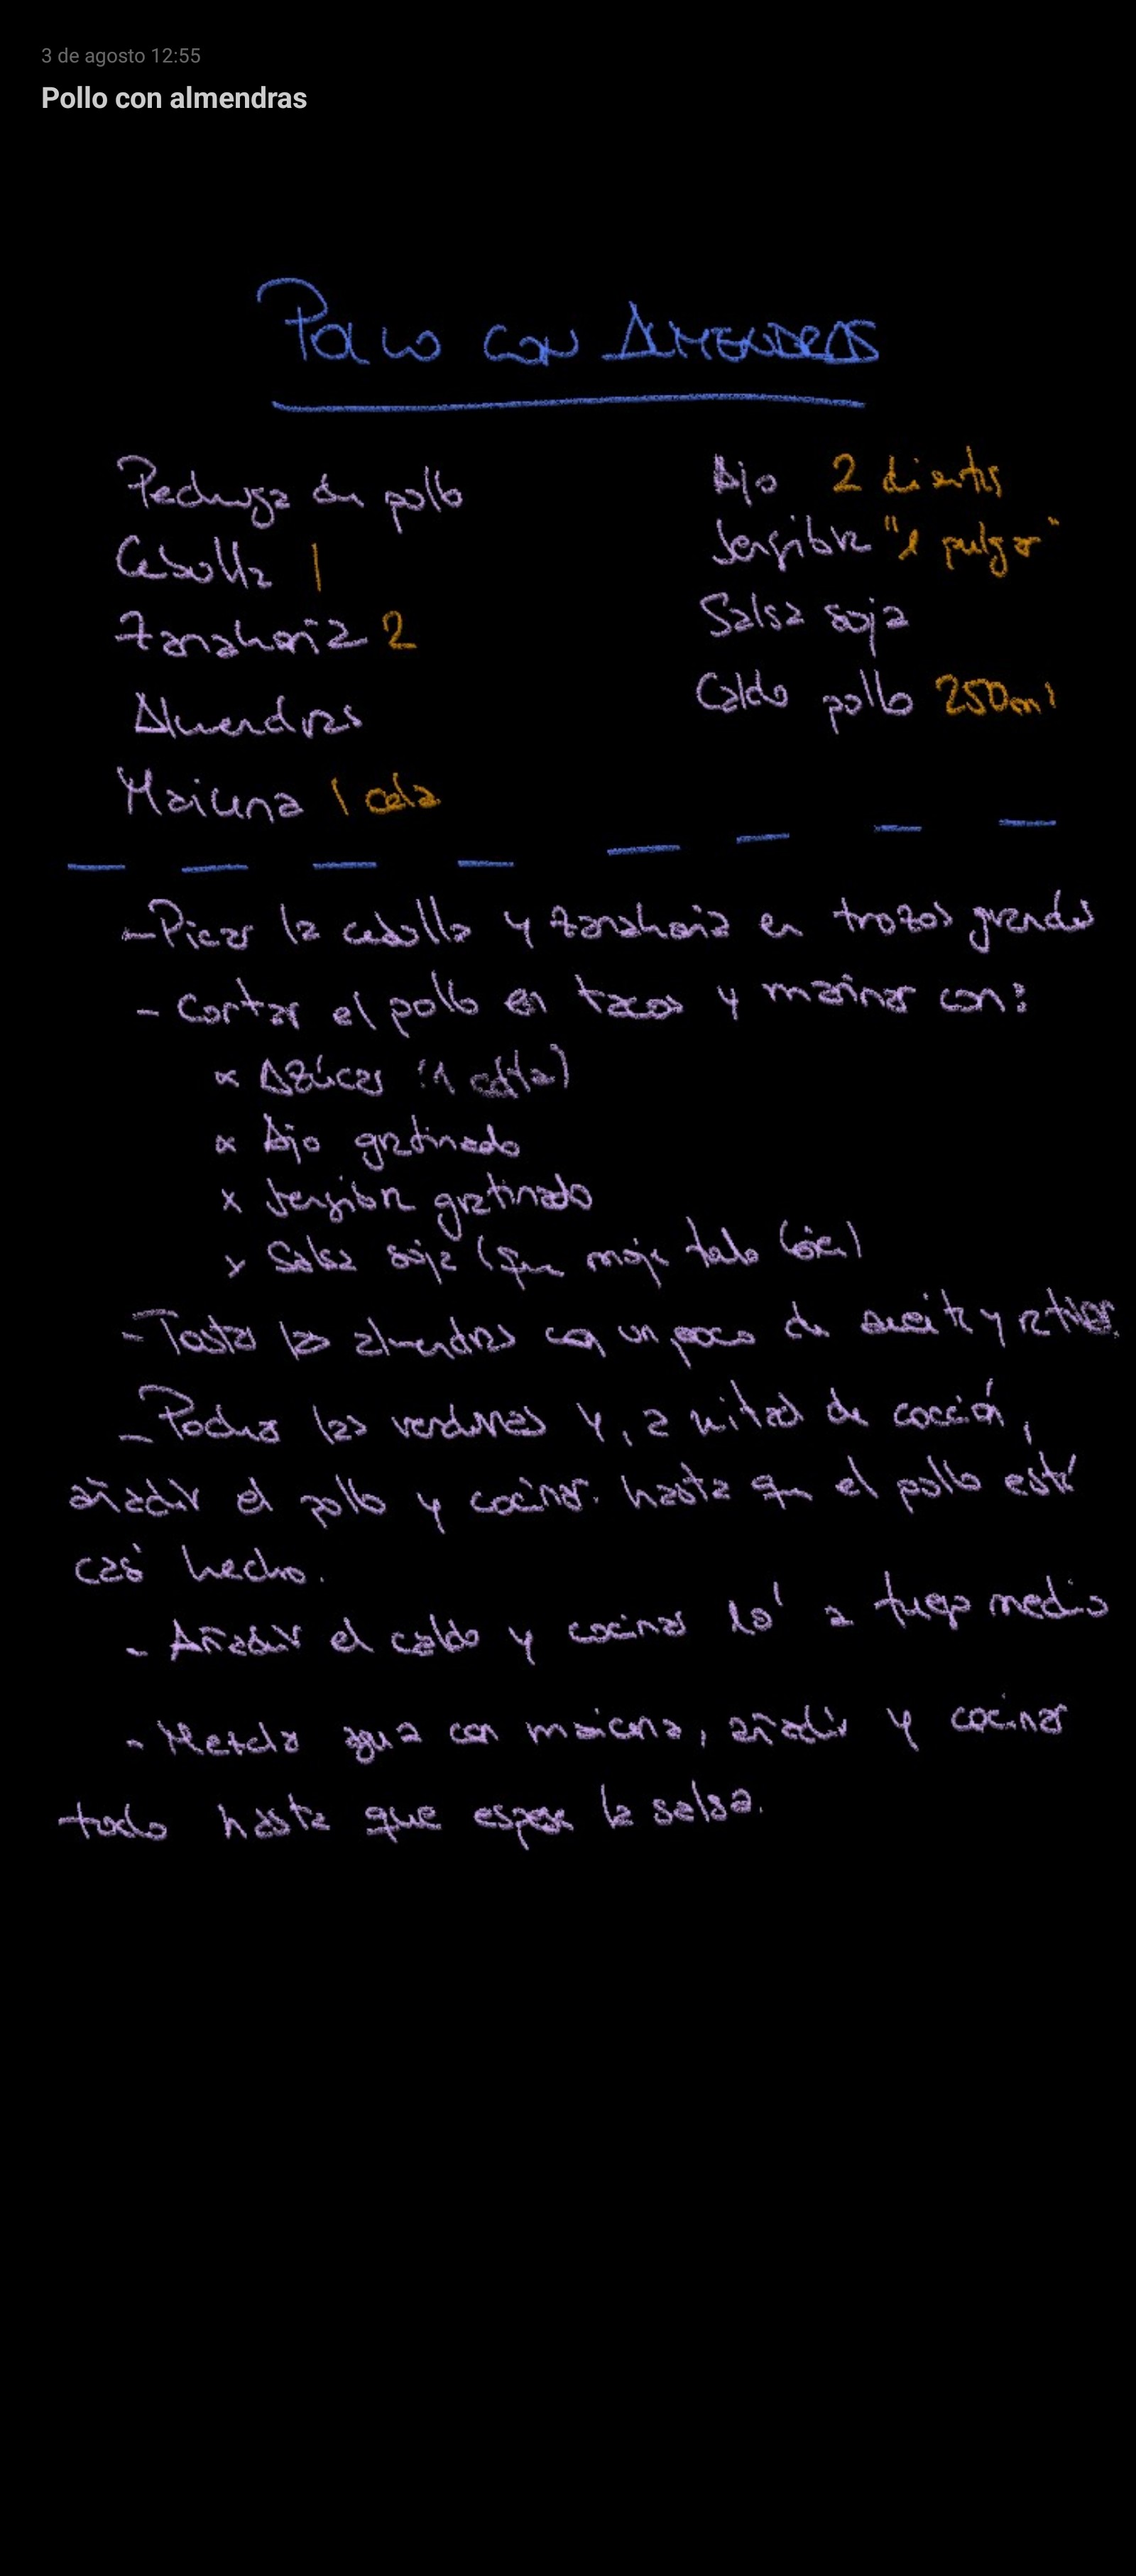 3 de agosto 12:55
Pollo con almendras
POLLO CON ALMENDRAS
Pechuga de pollo
Cebolla 1
Zanahoria 2
Almendras
Maicena 1 cda
Ajo 2 dientes
Jengibre "1 pulgar"
Salsa soja
Caldo pollo 250ml
- Picar la cebolla y zanahoria en trozos grandes
- Cortar el pollo en tacos y marinar con:
x Azúcar (1 cdita)
x Ajo gratinado
x Jengibre gratinado
x Salsa soja (que moje todo bien)
- Tostar las almendras con un poco de aceite y retirar.
- Pochar las verduras y, a mitad de cocción,
añadir el pollo y cocinar. hasta que el pollo esté
casi hecho.
- Añadir el caldo y cocinar 10' a fuego medio
- Mezclar agua con maicena, añadir y cocinar
todo hasta que espese la salsa.